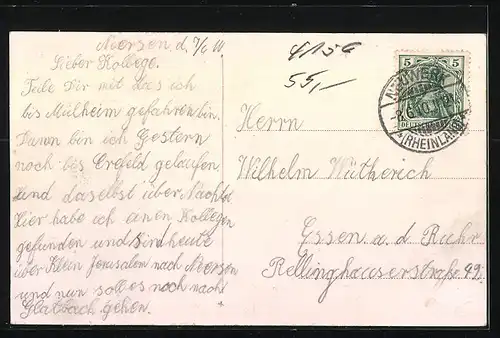 Neersen d. 7/6 10
Lieber Kollege.
Teile Dir mit das ich
bis Mülheim gefahren bin.
Dann bin ich Gestern
noch bis Crefeld gelaufen
und daselbst über Nachtet
Hier habe ich einen Kollegen
gefunden und Sind heute
über Klein Jerusalem nach Neersen
und nun soll es noch nach
Glatbach gehen.
4156
55,-
5 5
DEUTSCHES
NEUWERK
-8.6.10.
(RHEINLAND)
Herrn
Wilhelm Wütherich
Essen a. d Ruhr
Rellinghauserstraße 49.